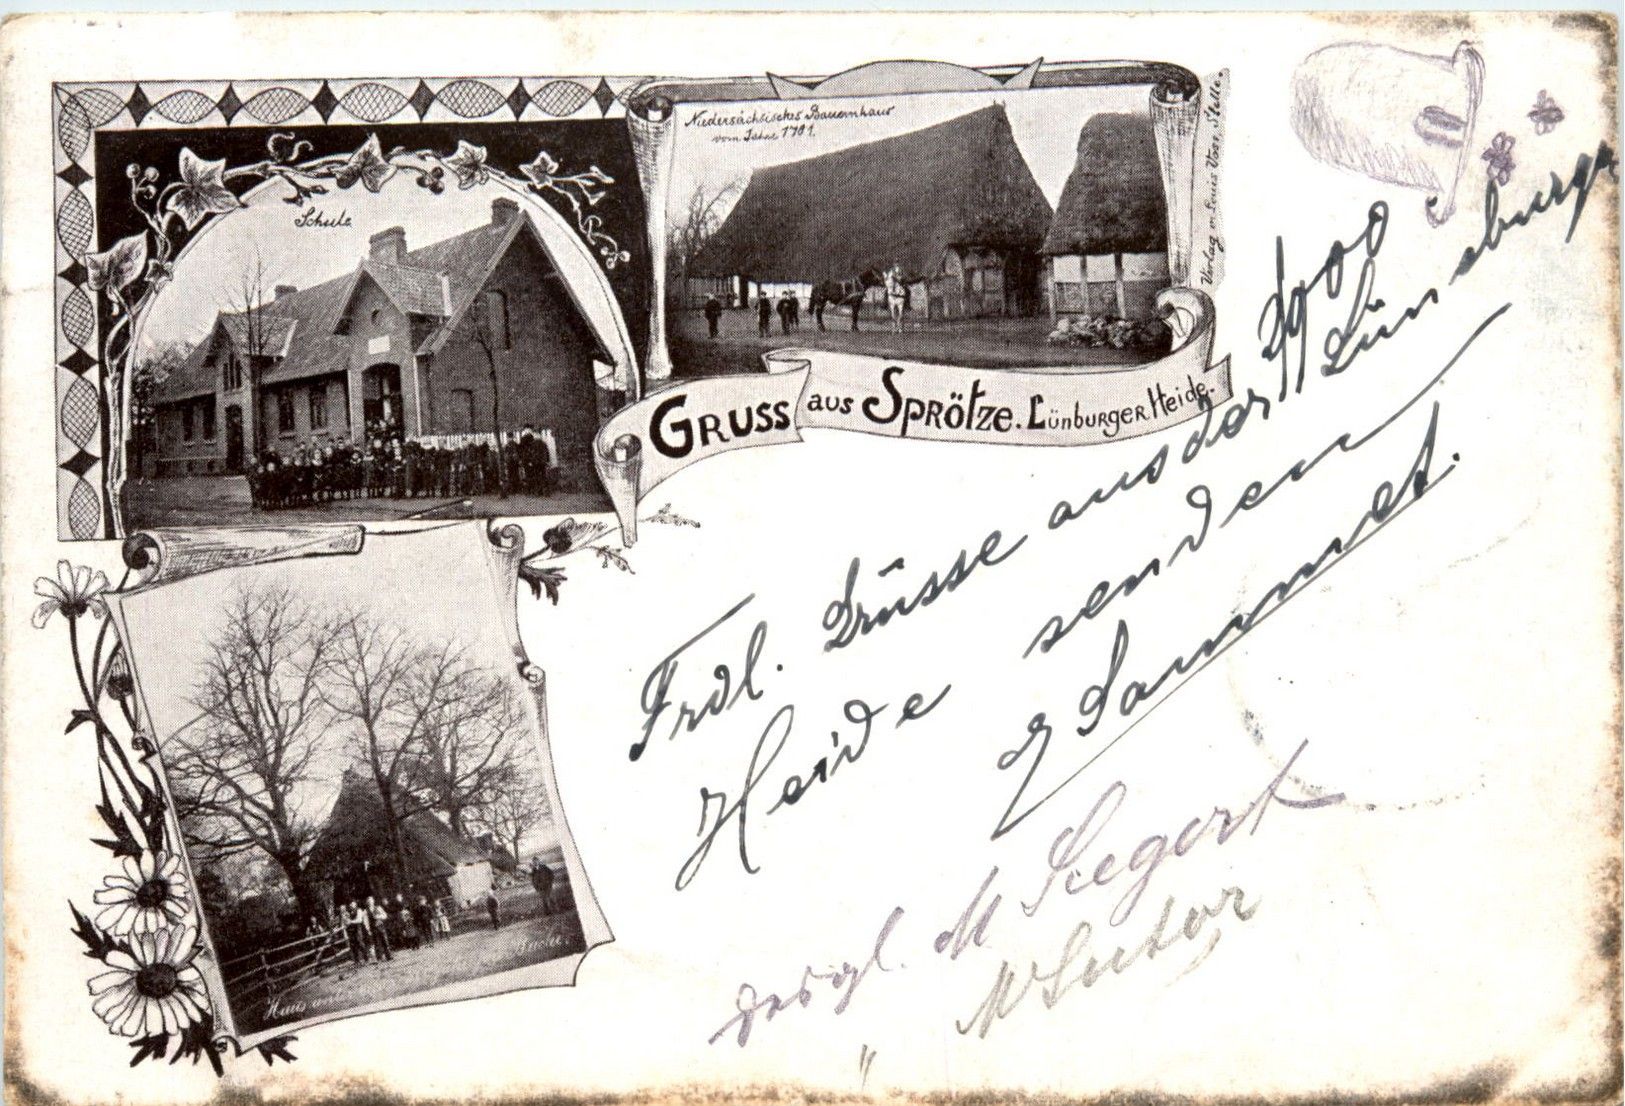 Schule
Niedersächsisches Bauernhaus
vom Jahre 1701.
Verlag v. Louis Voss, Stelle.
GRUSS aus SPRÖTZE. LÜNBURGER Heide.
Frdl. Grüsse aus der Lüneburger
Heide senden
Sammet.
desgl. M Siegert
" M Sutor
Haus